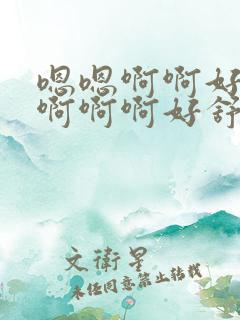 嗯嗯啊啊好
啊啊啊好舒
文衛星
未经同意禁止转载